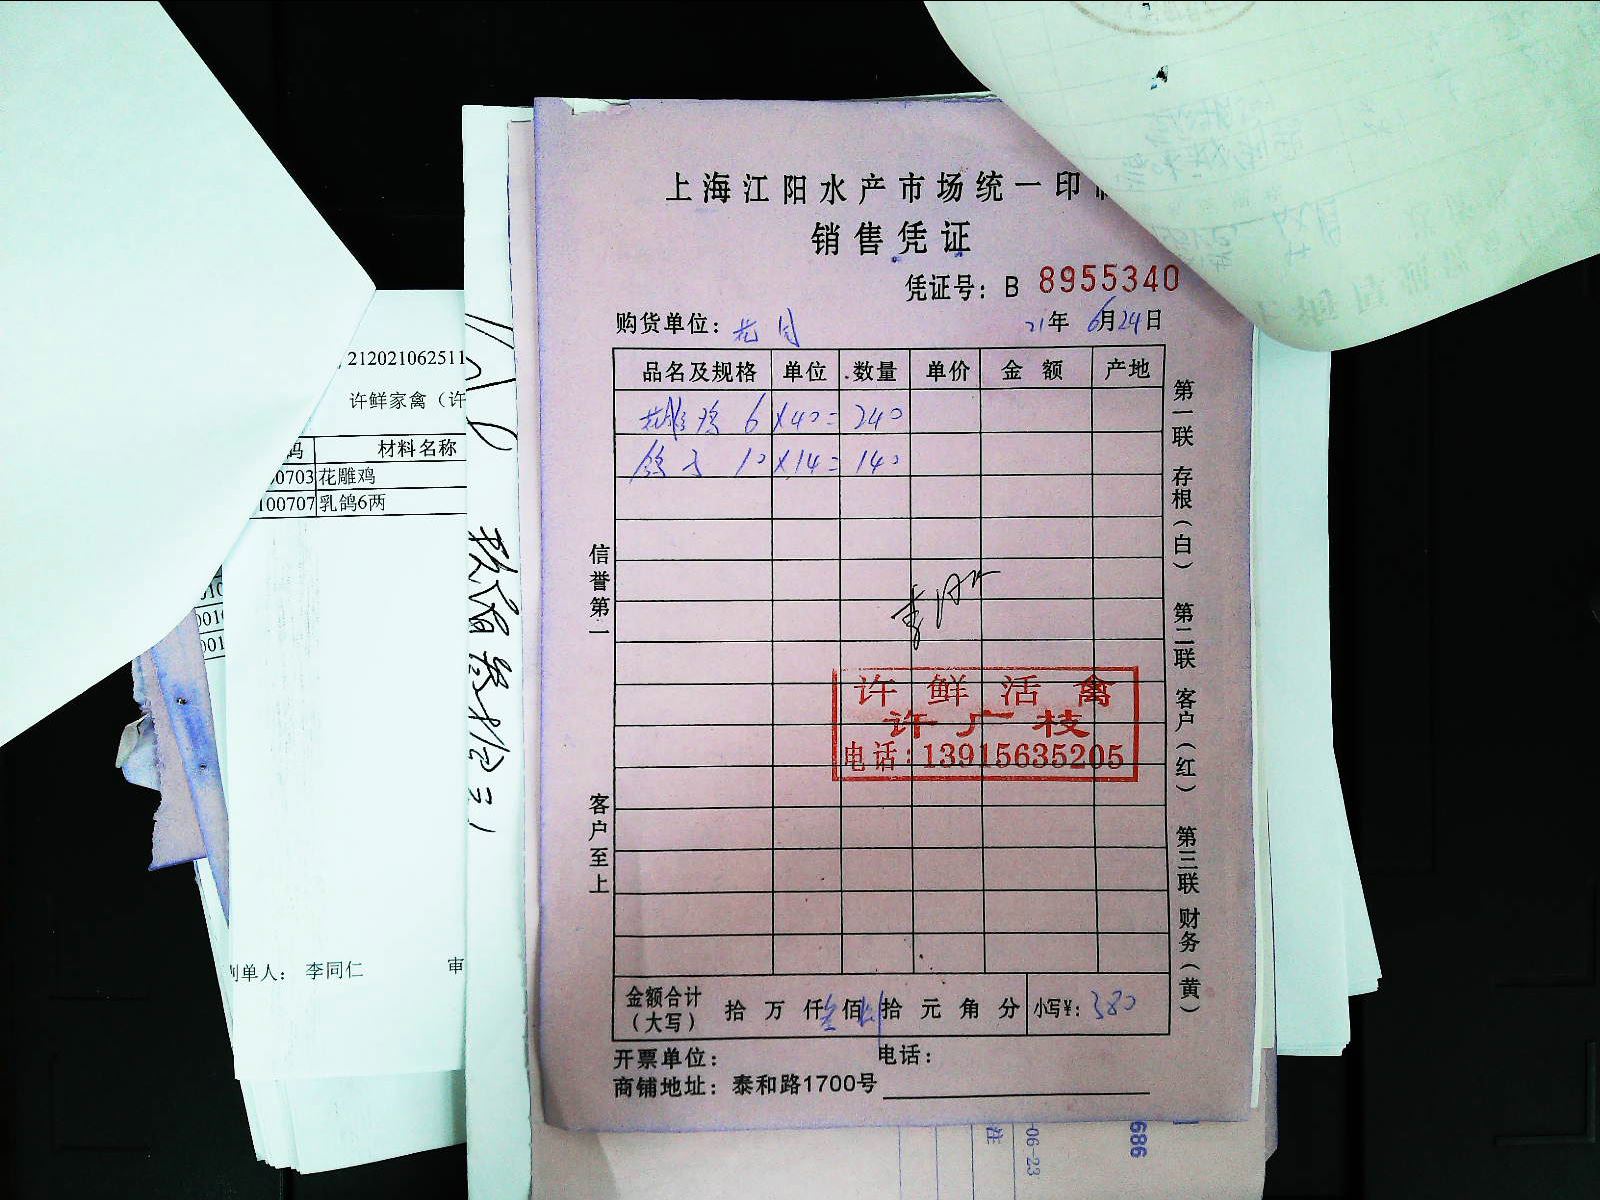 上海江阳水产市场统一印
销售凭证
凭证号：B 8955340
购货单位：花园
21年 6月24日
品名及规格 单位 数量 单价 金额 产地
花雕鸡 6 ×40= 240
鸽子 10 ×14= 140
信誉第一
客户至上
第一联 存根（白） 第二联 客户（红） 第三联 财务（黄）
许鲜活禽
许广枝
电话：13915635205
金额合计（大写） 拾 万 仟 叁 佰 捌 拾 元 角 分 小写¥：380
开票单位： 电话：
商铺地址：泰和路1700号
212021062511
许鲜家禽（许
码 材料名称
0703 花雕鸡
100707 乳鸽6两
制单人：李同仁 审
-06-23
注
686